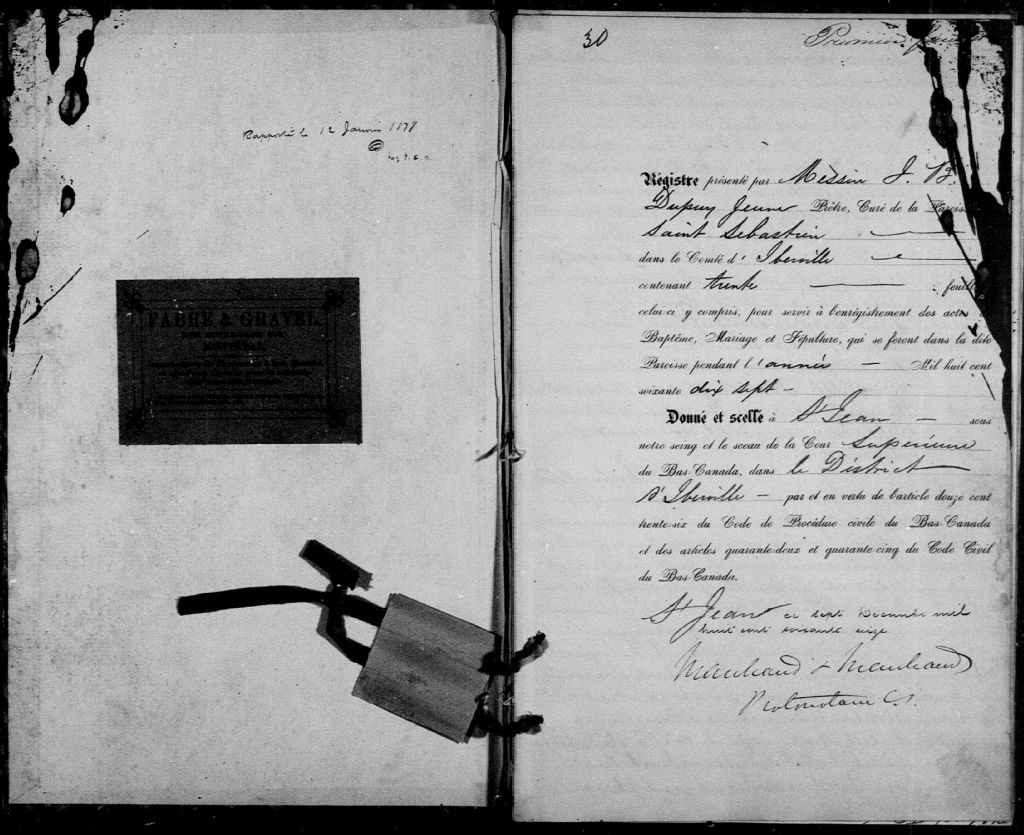 Rapporté le 12 Janvier 1878
FABRE & GRAVEL
30
Premier feuillet
Régistre présenté par Messire J. B.
Dupuy Jeune Prêtre, Curé de la Paroisse
Saint Sébastien
dans le Comté d'Iberville
contenant trente feuillets
celui-ci y compris, pour servir à l'enrégistrement des actes
Baptême, Mariage et Sépulture, qui se feront dans la dite
Paroisse pendant l'année — Mil huit cent
soixante dix sept —
Donné et scellé à St Jean — sous
notre seing et le sceau de la Cour Supérieure
du Bas-Canada, dans le District
d'Iberville — par et en vertu de l'article douze cent
trente-six du Code de Procédure civile du Bas-Canada
et des articles quarante-deux et quarante-cinq du Code Civil
du Bas-Canada.
St Jean ce sept Décembre mil
huit cent soixante seize
Marchand & Marchand
Protonotaire C. S.